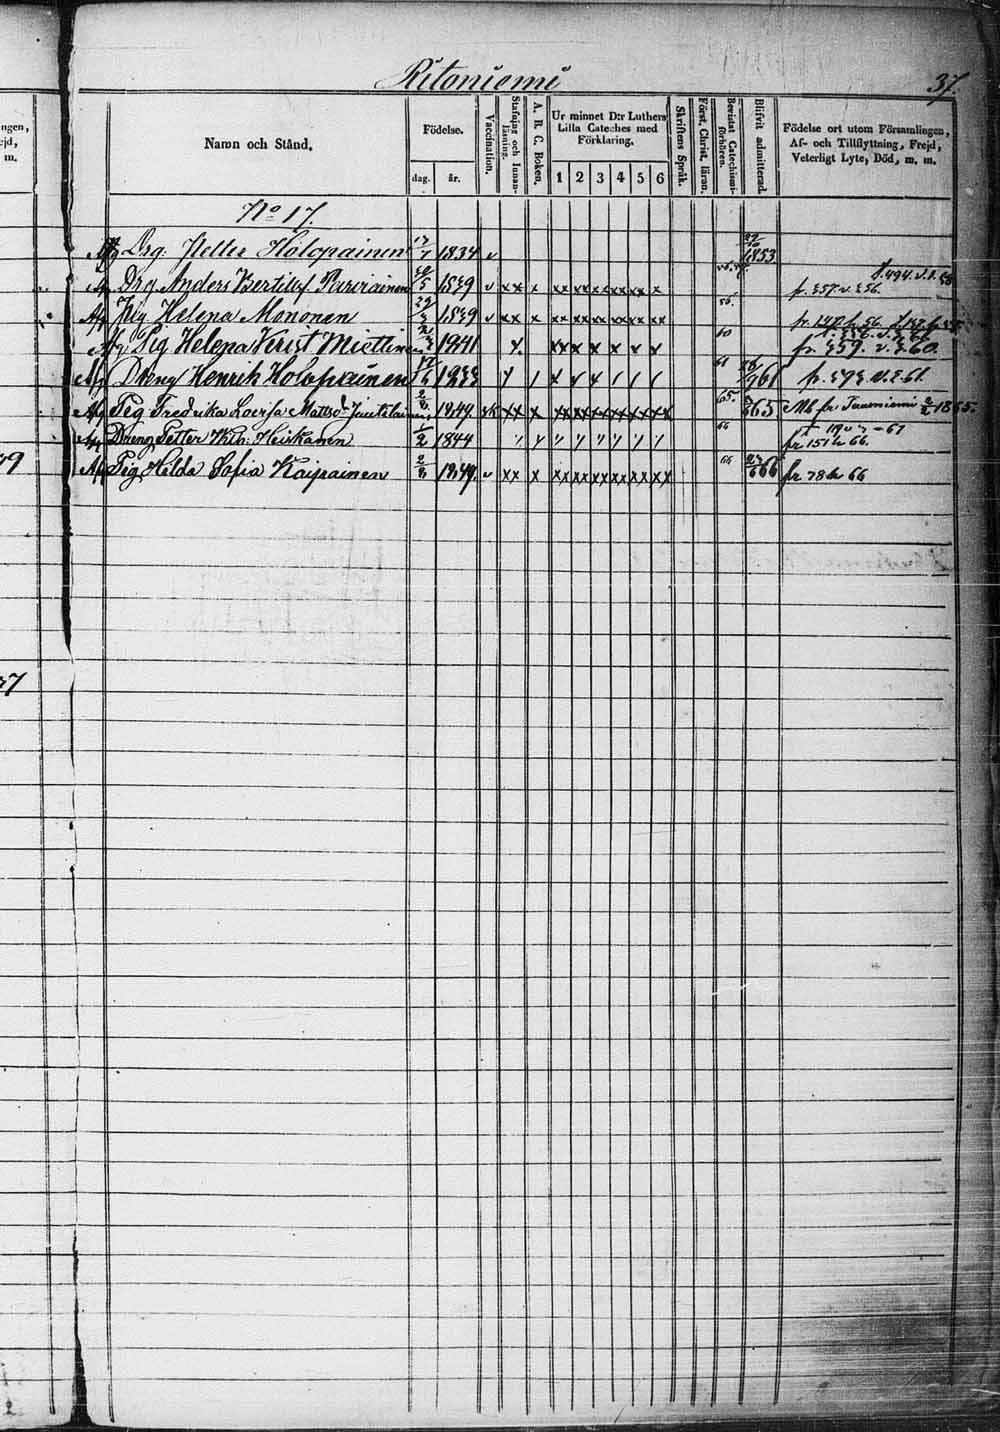 Ritoniemi
37.
ngen,
ejd,
m.
Namn och Stånd.
Födelse.
dag. år.
Vaccination.
Stafning och Innan-läsning.
A. B. C. Boken.
Ur minnet D:r Luthers
Lilla Cateches med
Förklaring.
1 2 3 4 5 6
Skriftens Språk.
Först. Christ. läran.
Bevistat Catechismi-förhören.
Blifvit admitterad.
Födelse ort utom Församlingen,
Af- och Tillflyttning, Frejd,
Veterligt Lyte, Död, m. m.
No 17.
Afg Drg. Petter Holopainen 17/1 1834 v 1853
Afg Drg Anders Bertilsf. Parviainen 30/5 1839 v xx x xx xx xx xx xx x fr. 357. v. 356.
Afg Pig Helena Mononen 1839 v xx x xx xx xx xx xx xx 56. fr. 147 h. 56.
Afg Pig Helena Krist Miettinen 1841 x. xx x x x x x 60 fr. 359. v. 360.
Afg Dreng Henrik Holopainen 17/6 1833 61 fr. 393 v. 61.
Afg Pig Fredrika Lovisa Mattsd. Juutilainen 2/2 1849 xx x xx xx xx xx xx xx 65. 65 Mb fr Tuusniemi 1865.
Afg Dreng Petter Heiskanen 1/2 1844 66 fr 151 h 66.
Afg Pig Hilda Sofia Kaipainen 2/2 1849. v xx x xx xx xx xx xx xx 66 66 fr 78 h 66